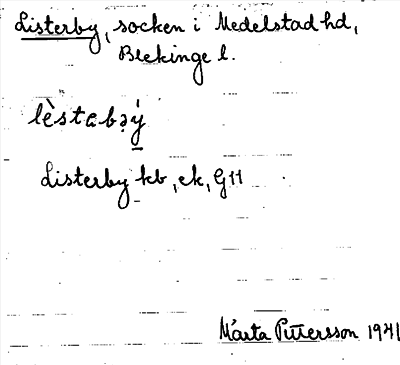 Listerby, socken i Medelstad hd,
Blekinge l.
lèstabəý
Listerby kb, ek, G11
Märta Pettersson 1941